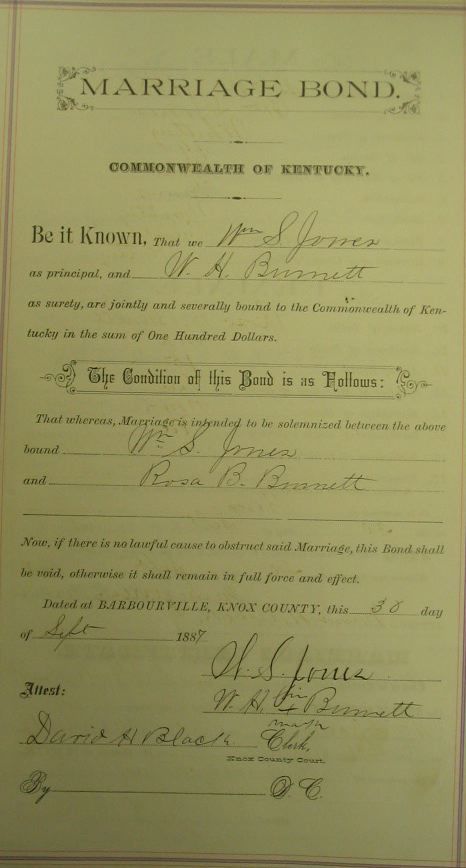 MARRIAGE BOND.
COMMONWEALTH OF KENTUCKY.
Be it Known, That we Wm S. Jones
as principal, and W. H. Burnett
as surety, are jointly and severally bound to the Commonwealth of Ken-
tucky in the sum of One Hundred Dollars.
The Condition of this Bond is as Follows:
That whereas, Marriage is intended to be solemnized between the above
bound Wm S. Jones
and Rosa B. Burnett
Now, if there is no lawful cause to obstruct said Marriage, this Bond shall
be void, otherwise it shall remain in full force and effect.
Dated at BARBOURVILLE, KNOX COUNTY, this 30 day
of Sept 1887
W. S. Jones
Attest: W. H. his x Burnett
mark
David H Black Clerk,
Knox County Court.
By D. C.